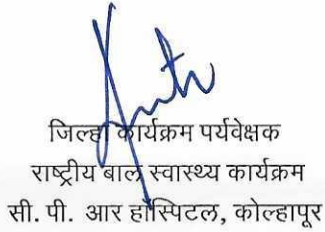 जिल्हा कार्यक्रम पर्यवेक्षक
राष्ट्रीय बाल स्वास्थ्य कार्यक्रम
सी. पी. आर हॉस्पिटल, कोल्हापूर